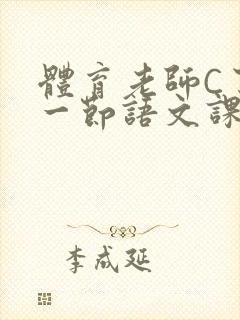 體育老師C
一節語文課
李成延